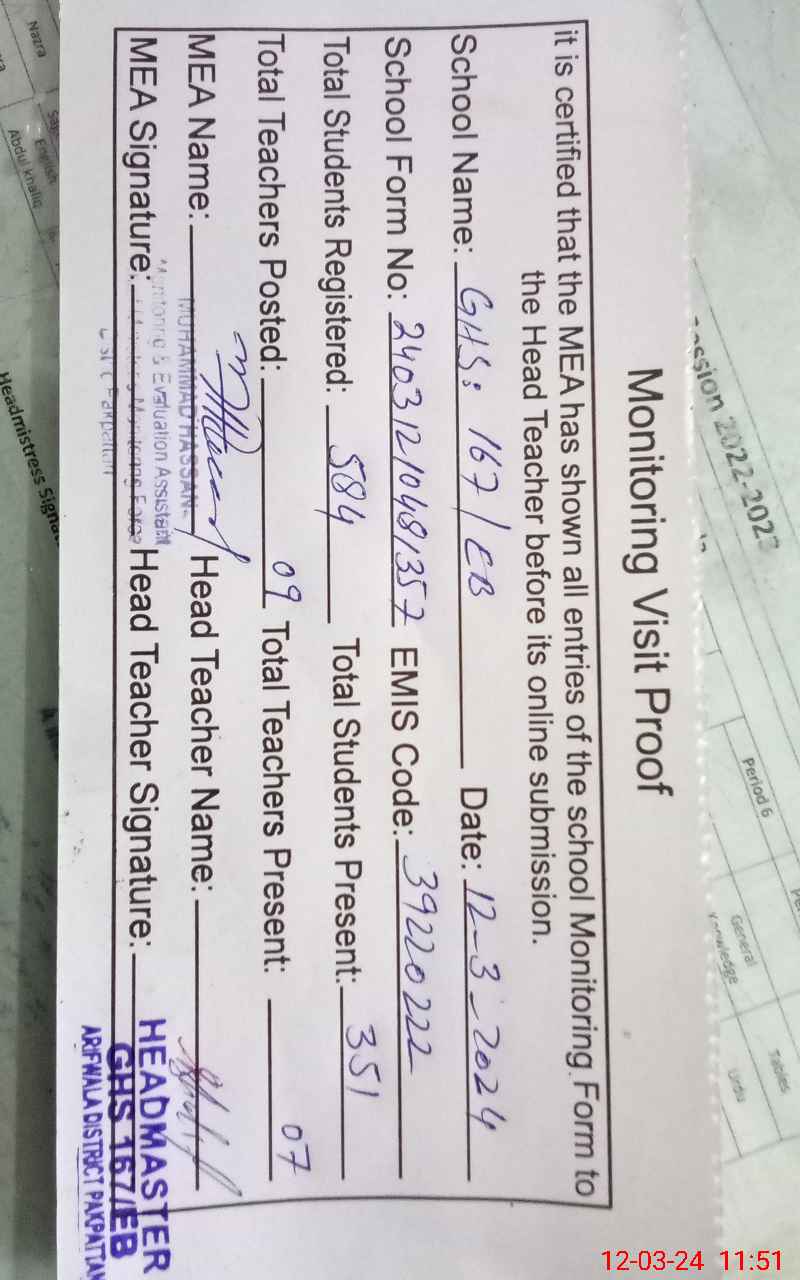 Monitoring Visit Proof
it is certified that the MEA has shown all entries of the school Monitoring Form to
the Head Teacher before its online submission.
School Name: GHS: 167/EB Date: 12-3-2024
School Form No: 24031210481357 EMIS Code: 39220222
Total Students Registered: 584 Total Students Present: 351
Total Teachers Posted: 09 Total Teachers Present: 07
MEA Name: MUHAMMAD HASSAN Head Teacher Name:
Monitoring & Evaluation Assistant
MEA Signature: Head Teacher Signature:
Pakpattan
HEADMASTER
GHS 167/EB
ARIFWALA DISTRICT PAKPATTAN
ession 2022-2023
Period 6
General
Knowledge
Tables
Urdu
Nazra
English
Abdul khaliq
Headmistress Signa
12-03-24 11:51